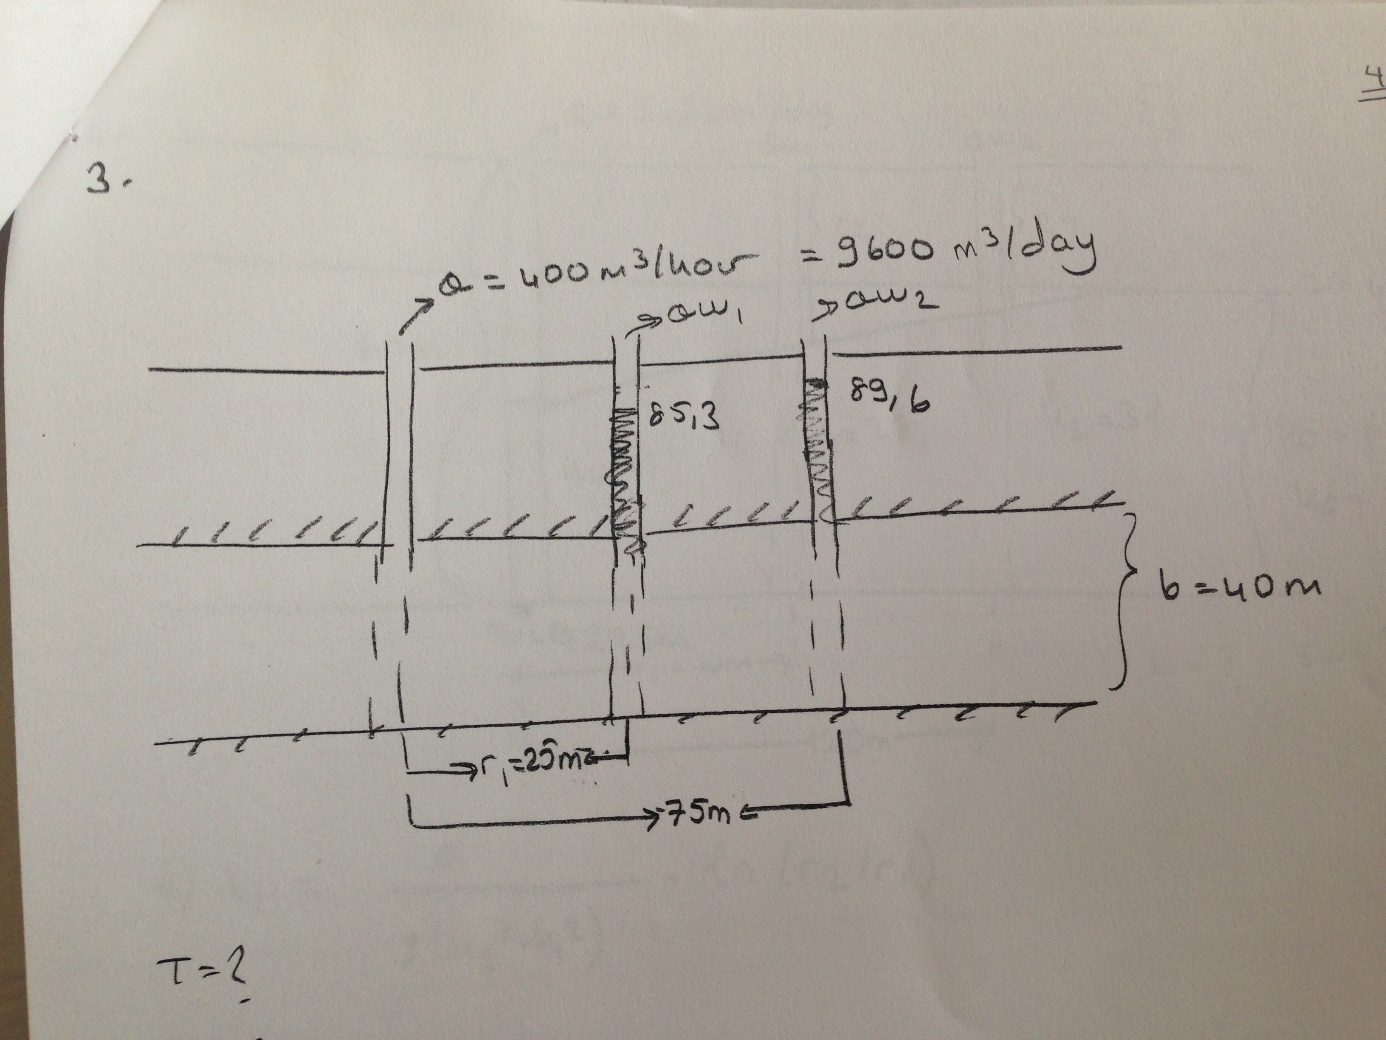 4
3.
Q = 400 m³/hour = 9600 m³/day
OW₁
OW₂
85,3
89,6
b = 40 m
r₁ = 25m
75m
T = ?